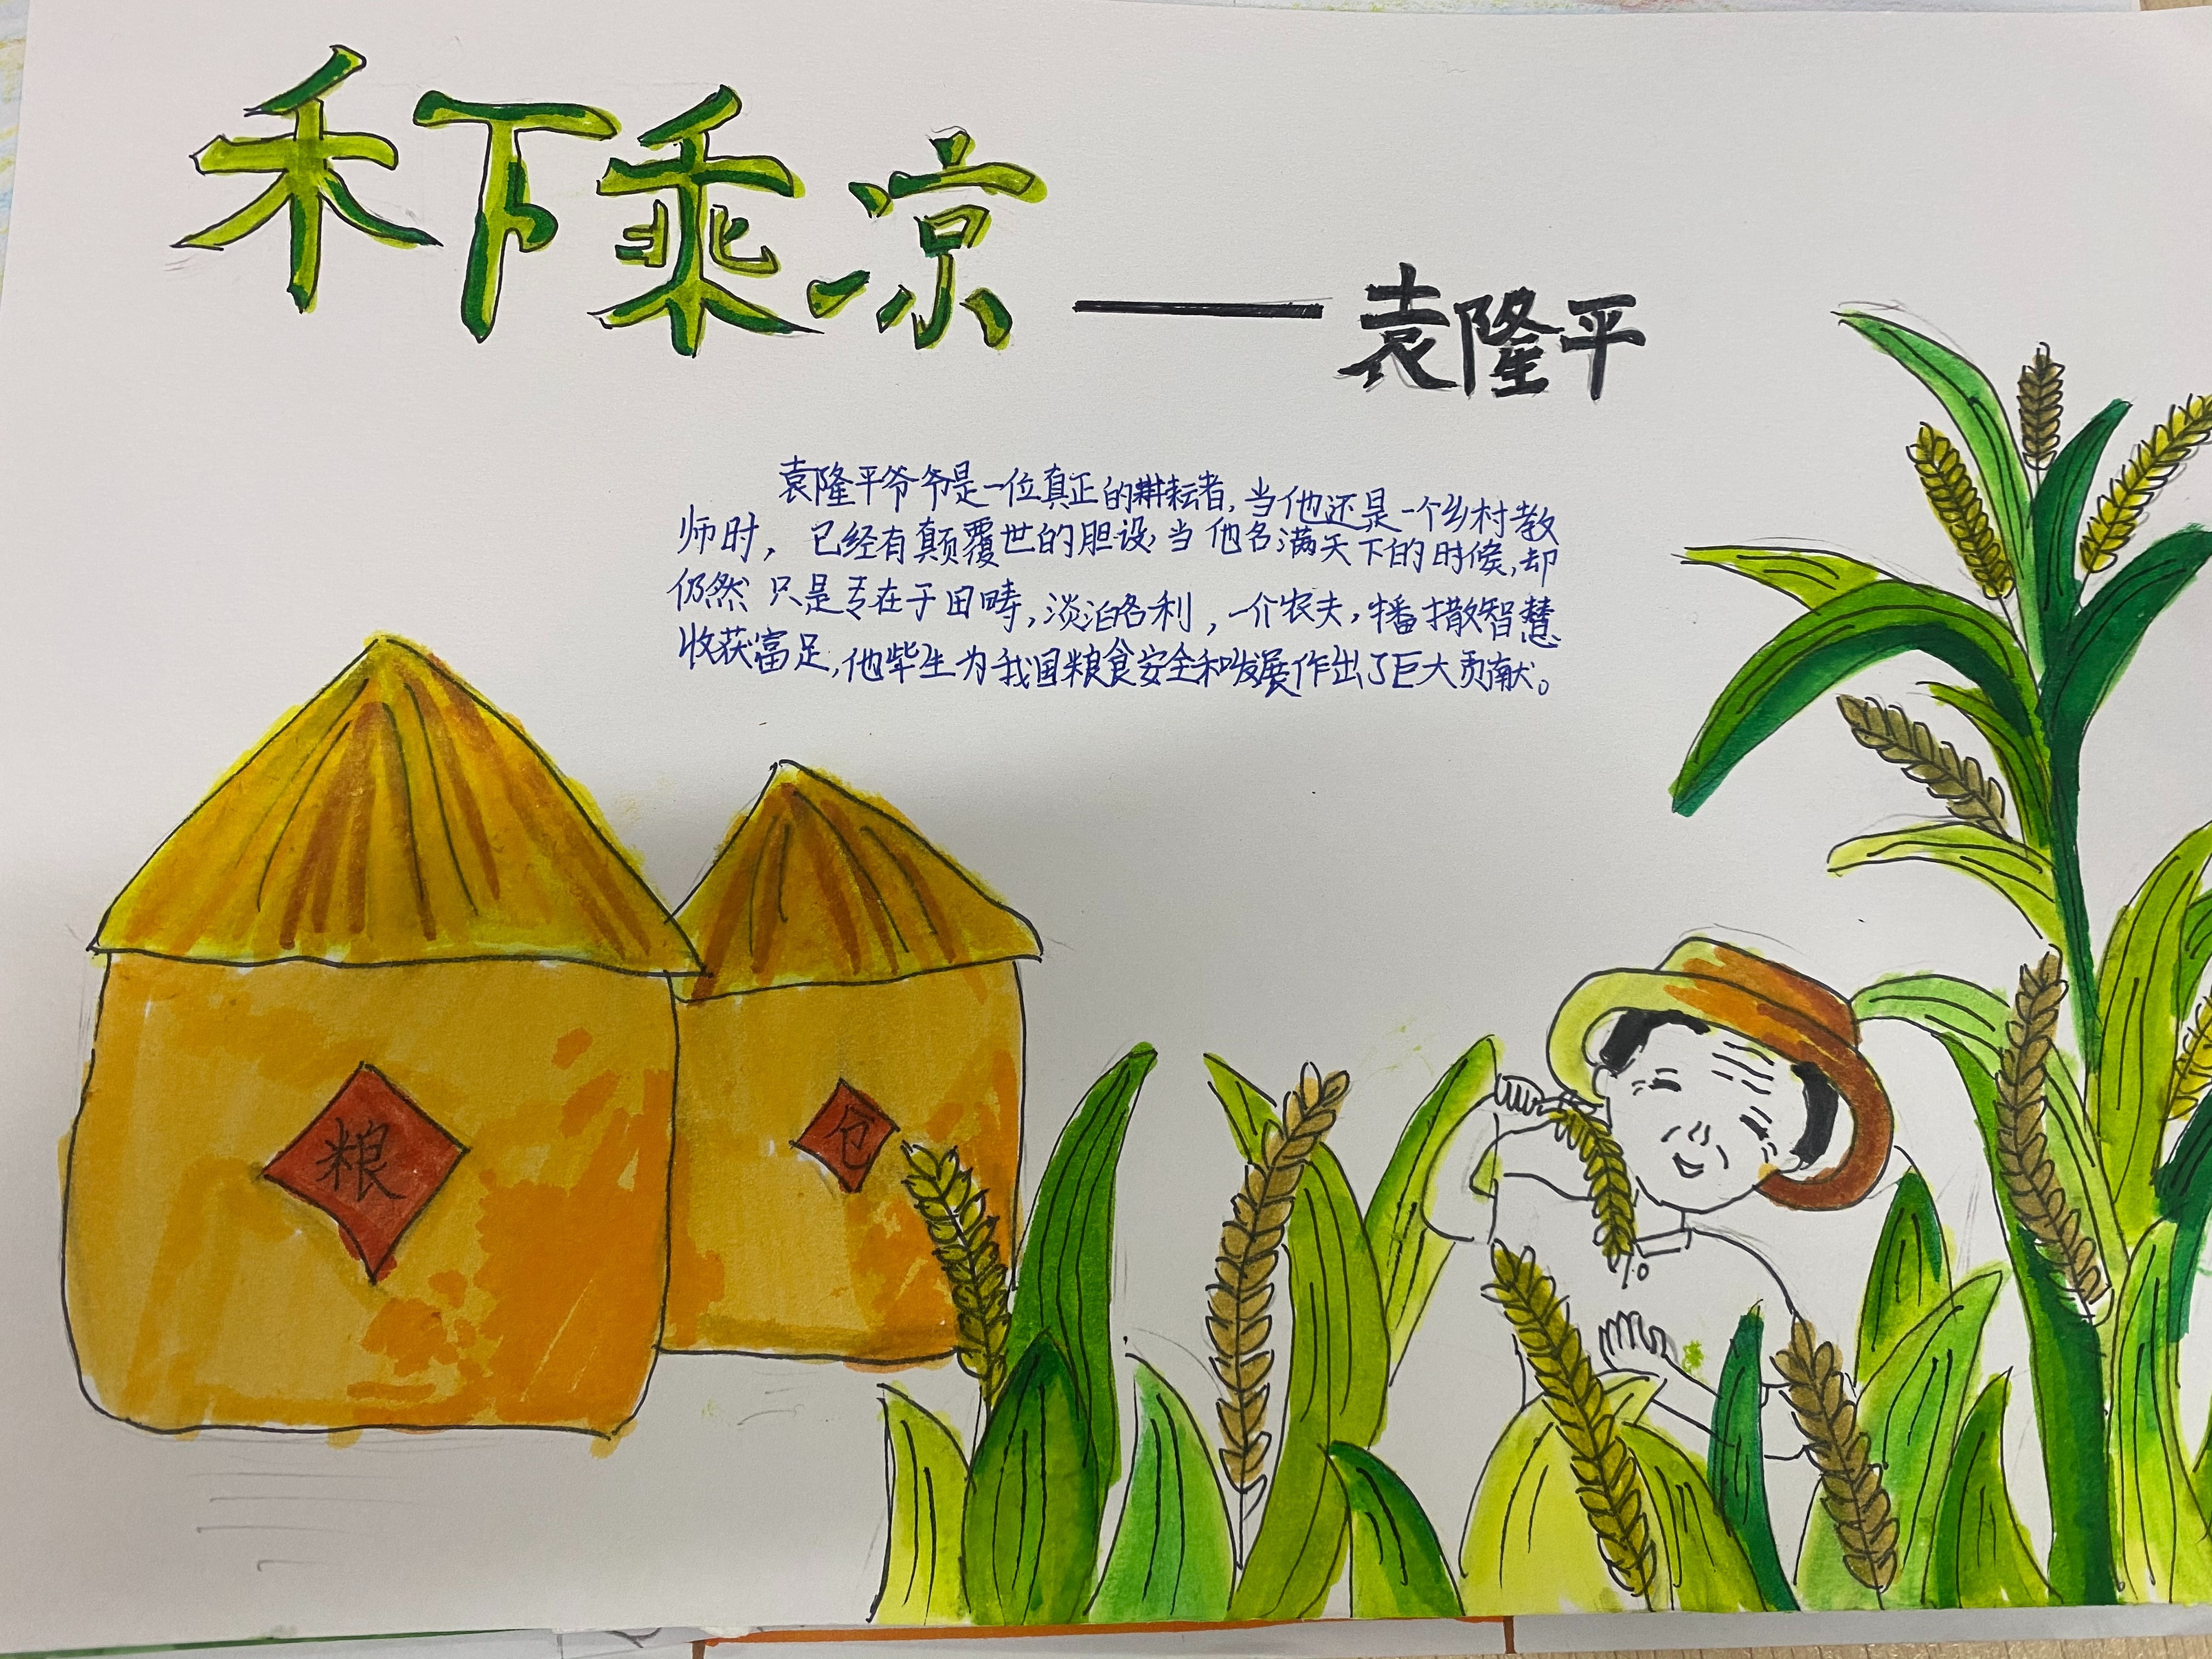 禾下乘凉
——袁隆平
袁隆平爷爷是一位真正的耕耘者,当他还是一个乡村教
师时,已经有颠覆世的胆设,当他名满天下的时候,却
仍然只是专在于田畴,淡泊名利,一介农夫,播撒智慧
收获富足,他毕生为我国粮食安全和发展作出了巨大贡献。
粮
仓